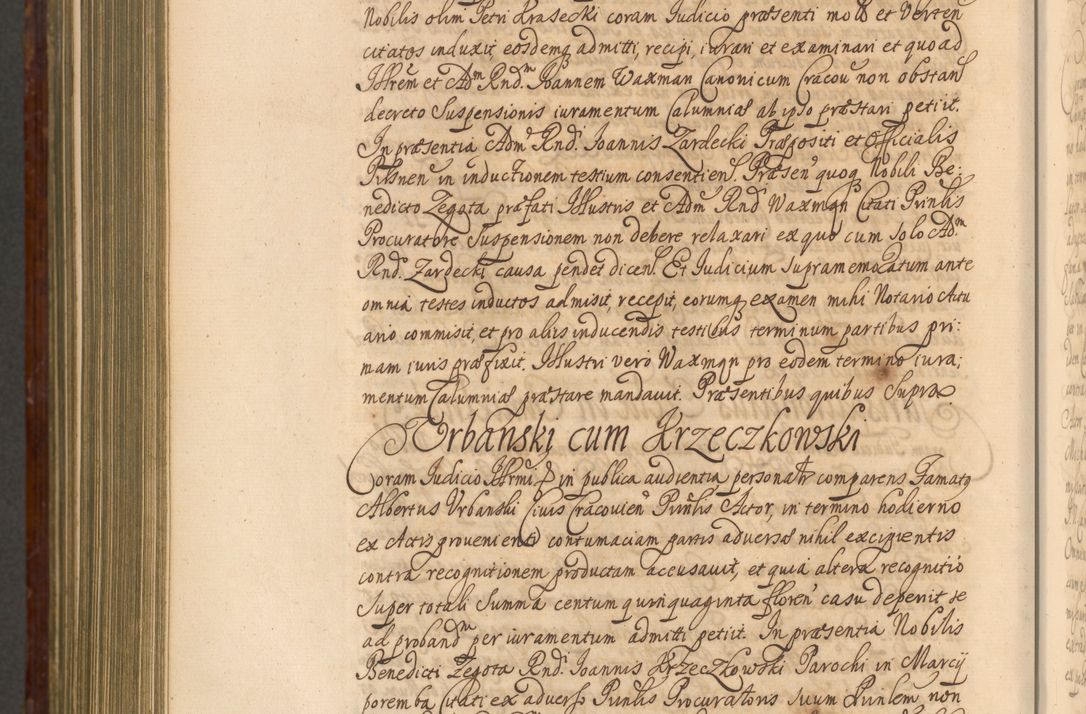 Nobilis olim Petri Krasecki coram Judicio præsenti mo et Verten
citatos induxit, eosdemq admitti, recipi, iurari et examinari et quoad
Illrem et Adm Rnd. Joannem Waxman Canonicum Cracou non obstan
decreto Suspensionis iuramentum Calumniæ ab ipso præstari petiit.
In præsentia Adm Rnd. Joannis Zardecki Præpositi et Officialis
Pilsnen in inductionem testium consentien. Præsen quoq Nobili Be-
nedicto Zegota præfati Illustris et Adm Rnd Waxman Citati Prinlis
Procuratore Suspensionem non debere relaxari ex quo cum solo Adm
Rnd. Zardecki causa pendet dicen. Et Judicium supramemoratum ante
omnia testes inductos admisit, recepit, eorumq examen mihi Notario Actu
ario commisit, et pro aliis inducendis testibus terminum partibus pri:
mam iuris præfixit. Illustri vero Waxman pro eodem termino iura;
mentum Calumniæ præstare mandauit. Præsentibus quibus Supra
Vrbanski cum Krzeczkowski
Coram Judicio Illrmi & in publica audientia personalr comparens Famatq
Albertus Vrbanski Ciuis Cracouien Prinlis Actor, in termino hodierno
ex Actis provenienti contumaciam partis adversæ nihil excipientis
contra recognitionem productam accusauit, et quia altera recognitio
super totali Summa centum quinquaginta floren casu deperiit se
ad proband per iuramentum admitti petiit. In præsentia Nobilis
Benedicti Zegota Rnd. Joannis Krzeczkowski Parochi in Marcy
poremba Citati ex adverso Prinlis Procuratoris suum Prinlem non